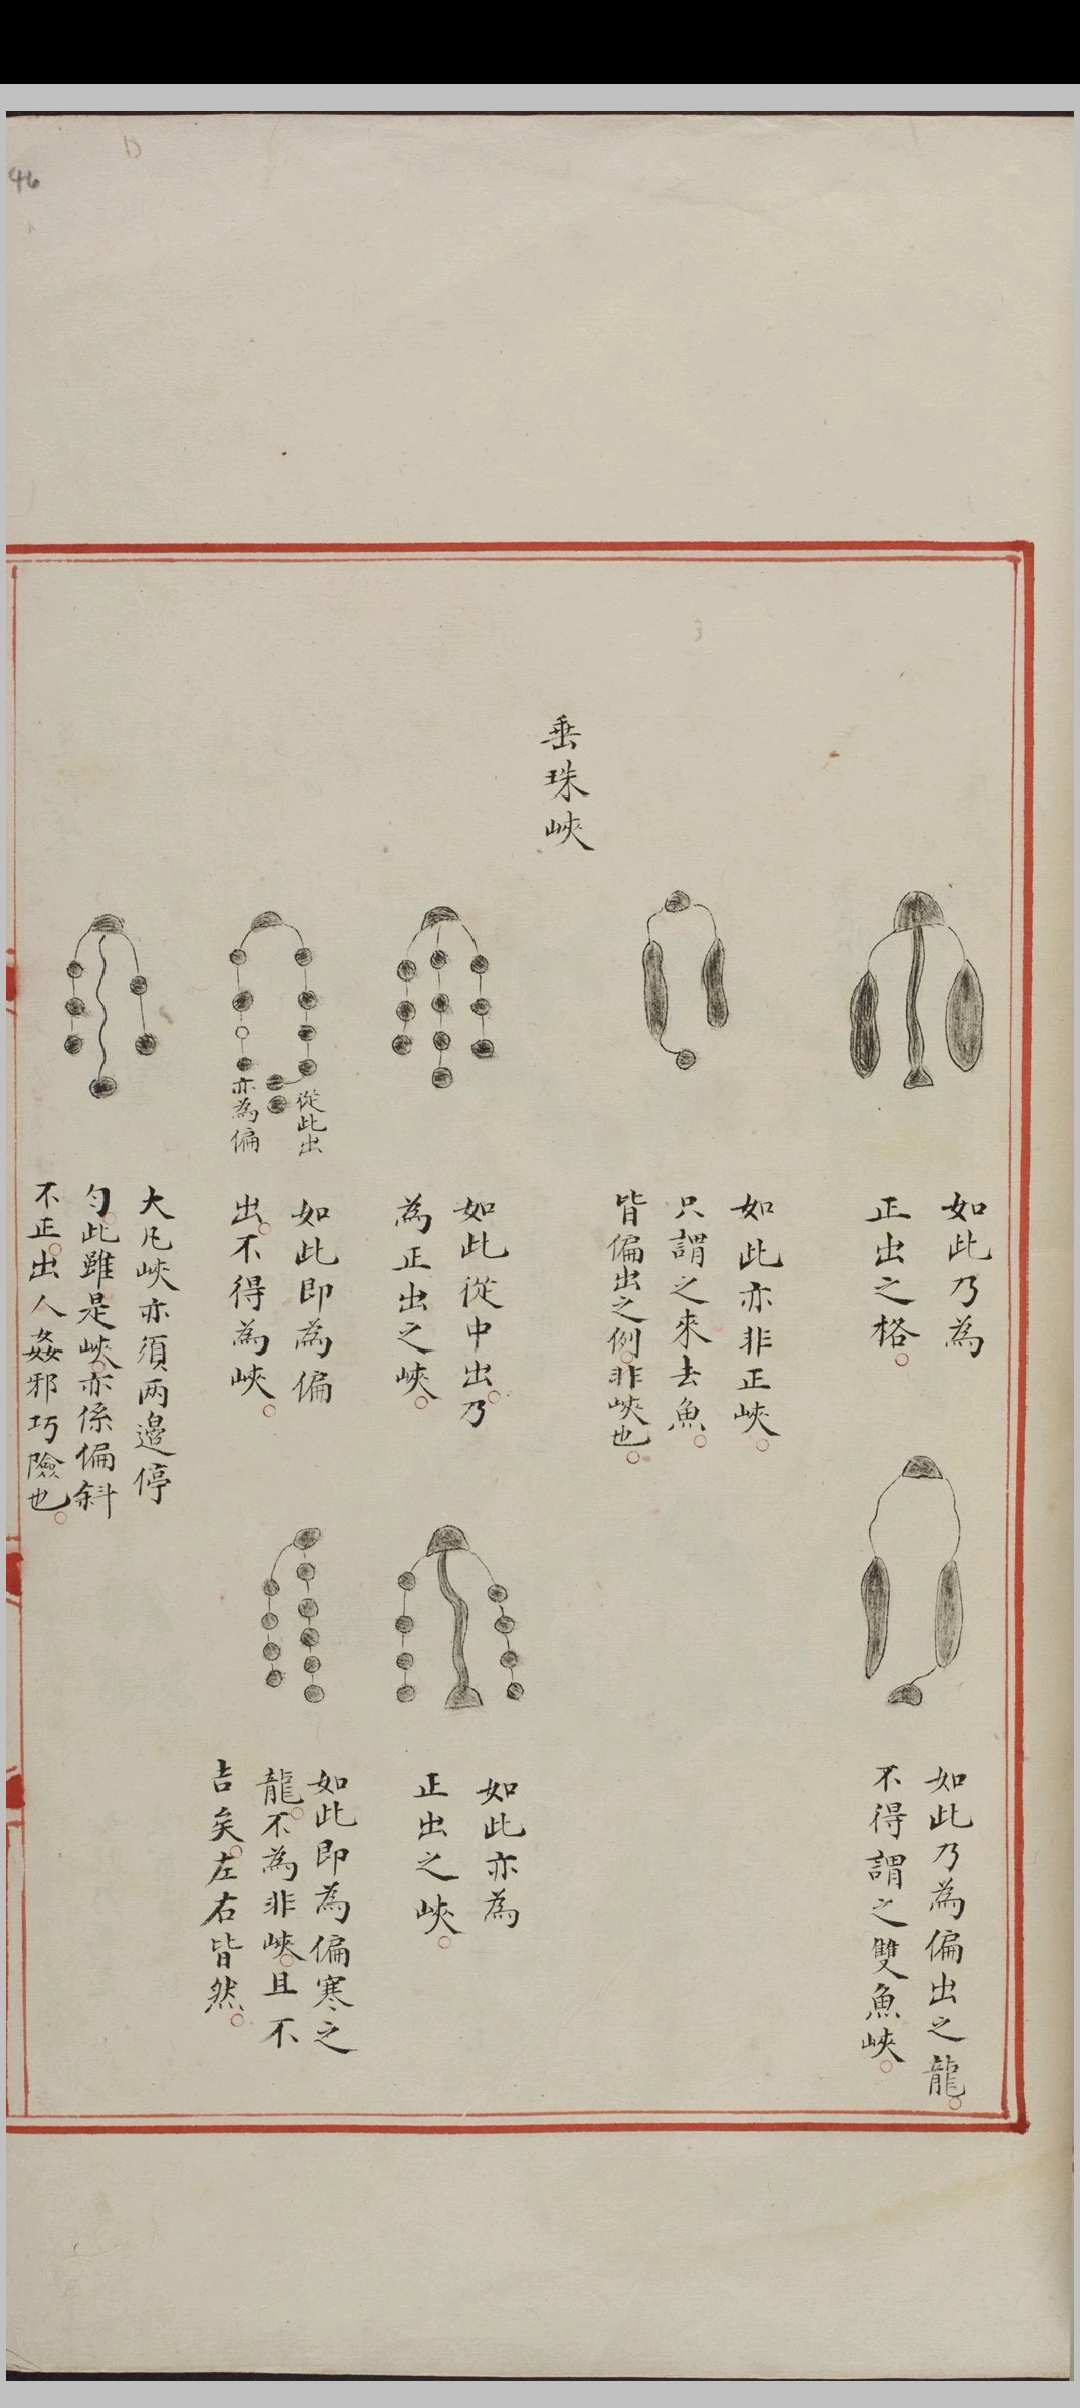 46
如此乃為
正出之格。
如此乃為偏出之龍。
不得謂之雙魚峽。
如此亦非正峽。
只謂之來去魚。
皆偏出之例。非峽也。
垂珠峽
如此從中出。乃
為正出之峽。
如此亦為
正出之峽。
從此出
亦為偏
如此即為偏
出。不得為峽。
如此即為偏寒之
龍。不為非峽。且不
吉矣。左右皆然。
大凡峽亦須两邉停
勻。此雖是峽。亦係偏斜
不正。出人姦邪巧險也。